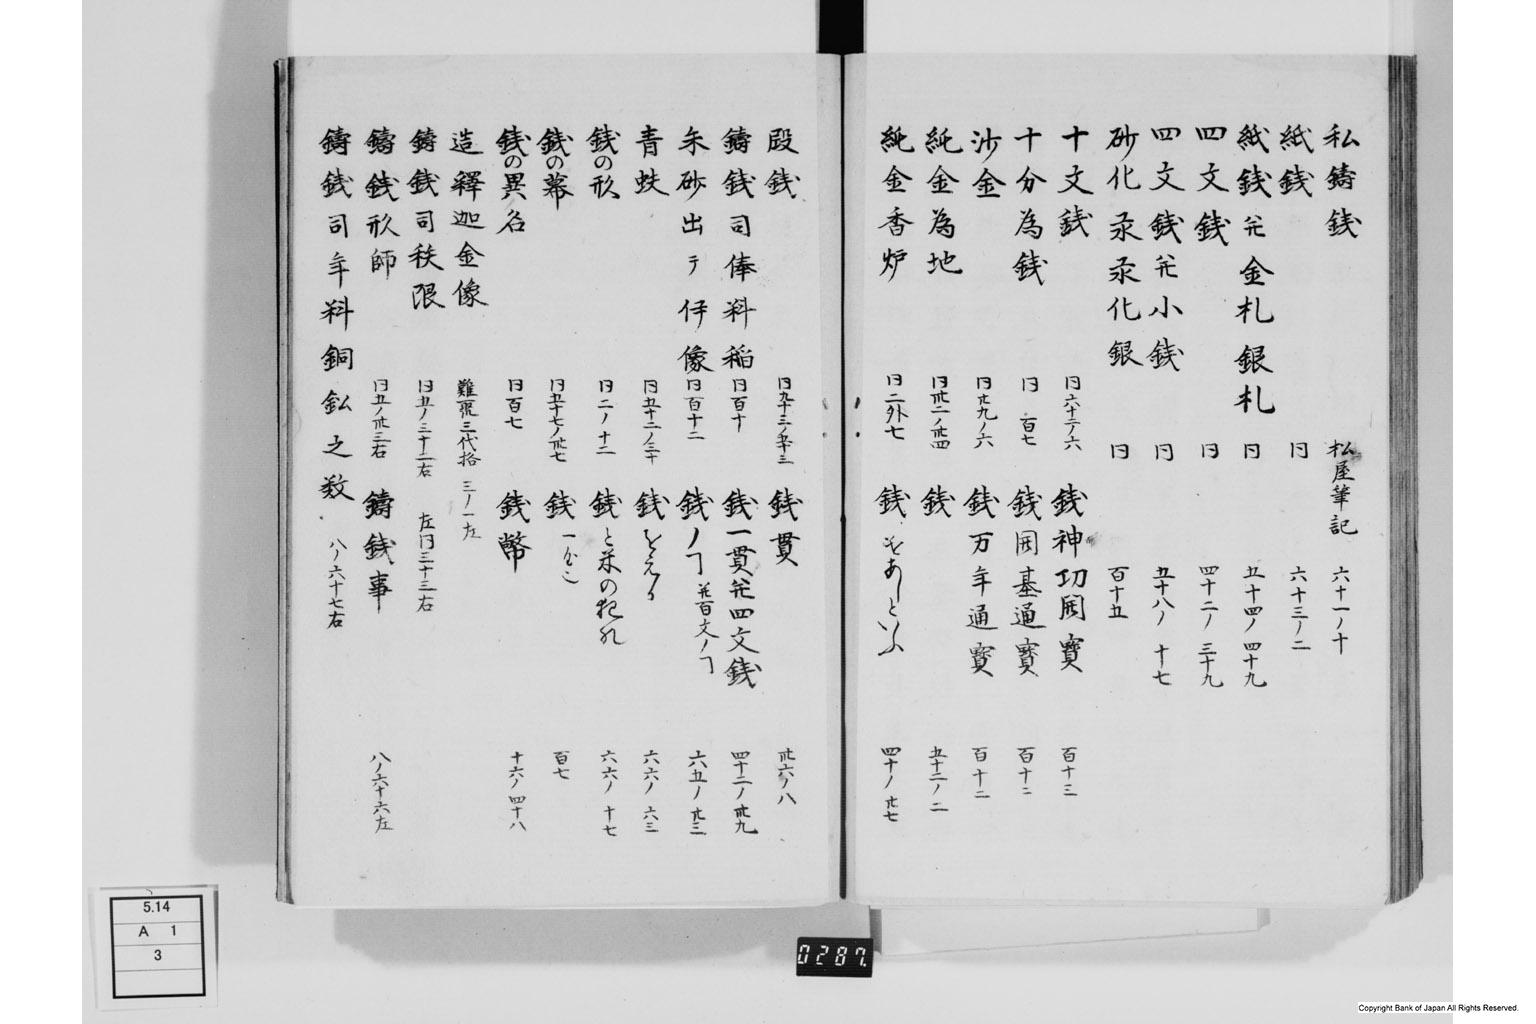 私鋳銭 松屋筆記 六十一ノ十
紙銭 同 六十三ノ二
紙銭并金札銀札 同 五十四ノ四十九
四文銭 同 四十二ノ三十九
四文銭并小銭 同 五十八ノ十七
砂化汞汞化銀 同 百十五
十文銭 同六十二ノ六 銭神功開寶 百十三
十分為銭 同 百七 銭開基通寶 百十二
沙金 同卅九ノ六 銭万年通寶 百十二
純金為地 同卅二ノ卅四 銭 五十二ノ二
純金香炉 同二外七 銭をあしといふ 四十ノ卅七
段銭 同九十三ノ五十三 銭貫 卅六ノ八
鋳銭司俸料稲 同百十 銭一貫并四文銭 四十二ノ卅九
朱砂出テ伊像 同百十二 銭ノヿ并百文ノヿ 六五ノ卅三
青蚨 同五十二ノ三十 銭 六六ノ六三
銭の形 同二ノ十二 銭と米の 六六ノ十七
銭の幕 同五十七ノ卅七 銭 百七
銭の異名 同百七 銭幣 十六ノ四十八
造釋迦金像 三代格 三ノ一左
鋳銭司秩限 同五ノ三十二右 左同三十三右
鋳銭形師 同五ノ卅三右 鋳銭事 八ノ六十六左
鋳銭司年料銅鈆之数 八ノ六十七右
5.14
A 1
3
0287.
Copyright Bank of Japan All Rights Reserved.